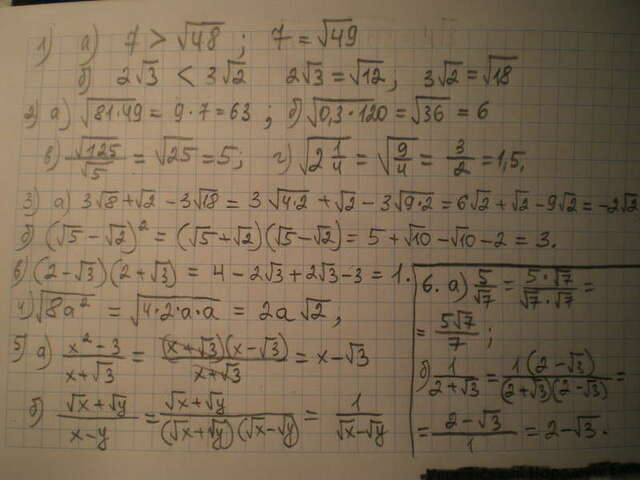 1) а) 7 > √48 ; 7 = √49
б) 2√3 < 3√2 2√3 = √12 ; 3√2 = √18
2) а) √(81·49) = 9·7 = 63 ; б) √(0,3·120) = √36 = 6
в) √125/√5 = √25 = 5; г) √(2 1/4) = √(9/4) = 3/2 = 1,5.
3) а) 3√8 + √2 − 3√18 = 3√(4·2) + √2 − 3√(9·2) = 6√2 + √2 − 9√2 = −2√2
б) (√5 − √2)² = (√5 + √2)(√5 − √2) = 5 + √10 − √10 − 2 = 3.
в) (2 − √3)(2 + √3) = 4 − 2√3 + 2√3 − 3 = 1.
4) √(8a²) = √(4·2·a·a) = 2a√2 ;
5) а) (x² − 3)/(x + √3) = (x + √3)(x − √3)/(x + √3) = x − √3
б) (√x + √y)/(x − y) = (√x + √y)/((√x + √y)(√x − √y)) = 1/(√x − √y)
6. а) 5/√7 = (5·√7)/(√7·√7) =
= 5√7/7 ;
б) 1/(2 + √3) = 1(2 − √3)/((2 + √3)(2 − √3)) =
= (2 − √3)/1 = 2 − √3.